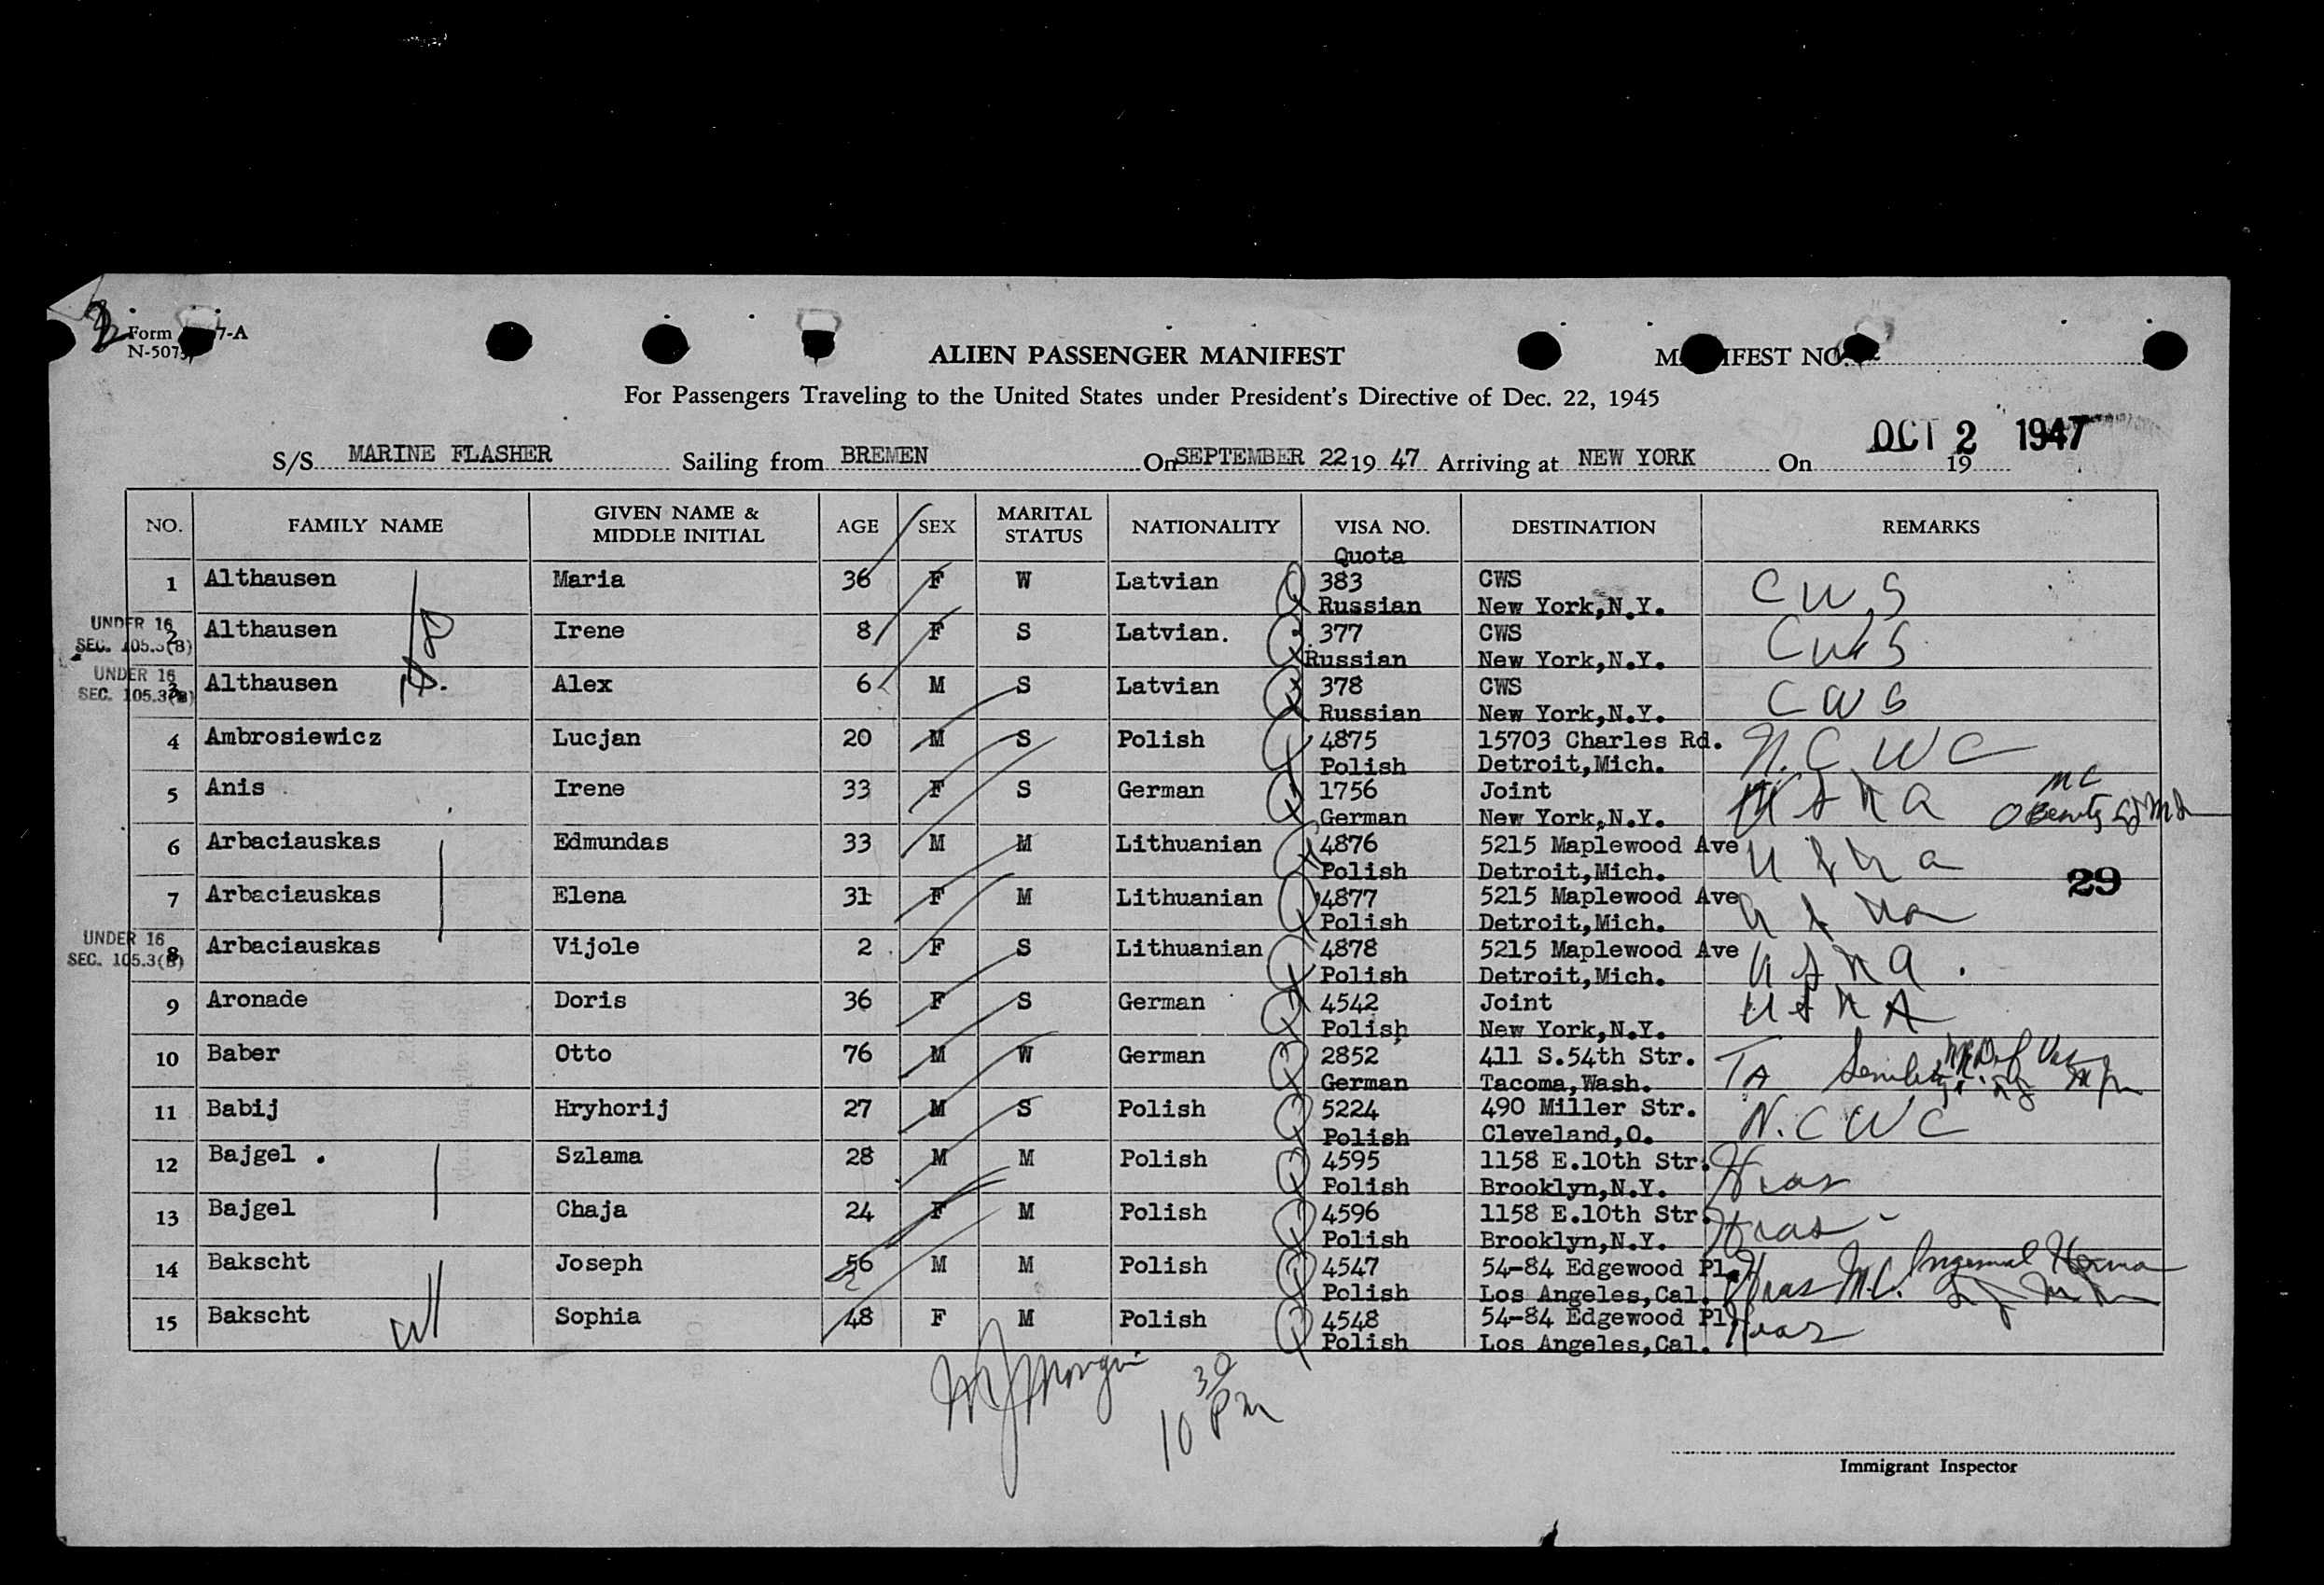 Form 7-A
N-5075
ALIEN PASSENGER MANIFEST
MANIFEST NO.
For Passengers Traveling to the United States under President's Directive of Dec. 22, 1945
OCT 2 1947
S/S MARINE FLASHER Sailing from BREMEN On SEPTEMBER 22 19 47 Arriving at NEW YORK On 19
NO. FAMILY NAME GIVEN NAME & MIDDLE INITIAL AGE SEX MARITAL STATUS NATIONALITY VISA NO. DESTINATION REMARKS
Quota
1 Althausen Maria 36 F W Latvian 383 CWS CWS
Russian New York,N.Y.
UNDER 16
SEC. 105.3(B)
2 Althausen Irene 8 F S Latvian. 377 CWS CWS
Russian New York,N.Y.
UNDER 16
SEC. 105.3(B)
3 Althausen Alex 6 M S Latvian 378 CWS CWS
Russian New York,N.Y.
4 Ambrosiewicz Lucjan 20 M S Polish 4875 15703 Charles Rd. N.C.W.C
Polish Detroit,Mich.
5 Anis Irene 33 F S German 1756 Joint USNA MC
German New York,N.Y.
6 Arbaciauskas Edmundas 33 M M Lithuanian 4876 5215 Maplewood Ave USNA
Polish Detroit,Mich.
29
7 Arbaciauskas Elena 31 F M Lithuanian 4877 5215 Maplewood Ave USNA
Polish Detroit,Mich.
UNDER 16
SEC. 105.3(B)
8 Arbaciauskas Vijole 2 F S Lithuanian 4878 5215 Maplewood Ave USNA.
Polish Detroit,Mich.
9 Aronade Doris 36 F S German 4542 Joint USNA
Polish New York,N.Y.
10 Baber Otto 76 M W German 2852 411 S.54th Str. TA
German Tacoma,Wash.
11 Babij Hryhorij 27 M S Polish 5224 490 Miller Str. N.C.W.C
Polish Cleveland,O.
12 Bajgel Szlama 28 M M Polish 4595 1158 E.10th Str. Hias
Polish Brooklyn,N.Y.
13 Bajgel Chaja 24 F M Polish 4596 1158 E.10th Str. Hias
Polish Brooklyn,N.Y.
14 Bakscht Joseph 56 M M Polish 4547 54-84 Edgewood Pl. Hias M.C. Inguinal Hernia
Polish Los Angeles,Cal.
15 Bakscht Sophia 48 F M Polish 4548 54-84 Edgewood Pl. Hias
Polish Los Angeles,Cal.
10 30 PM
Immigrant Inspector